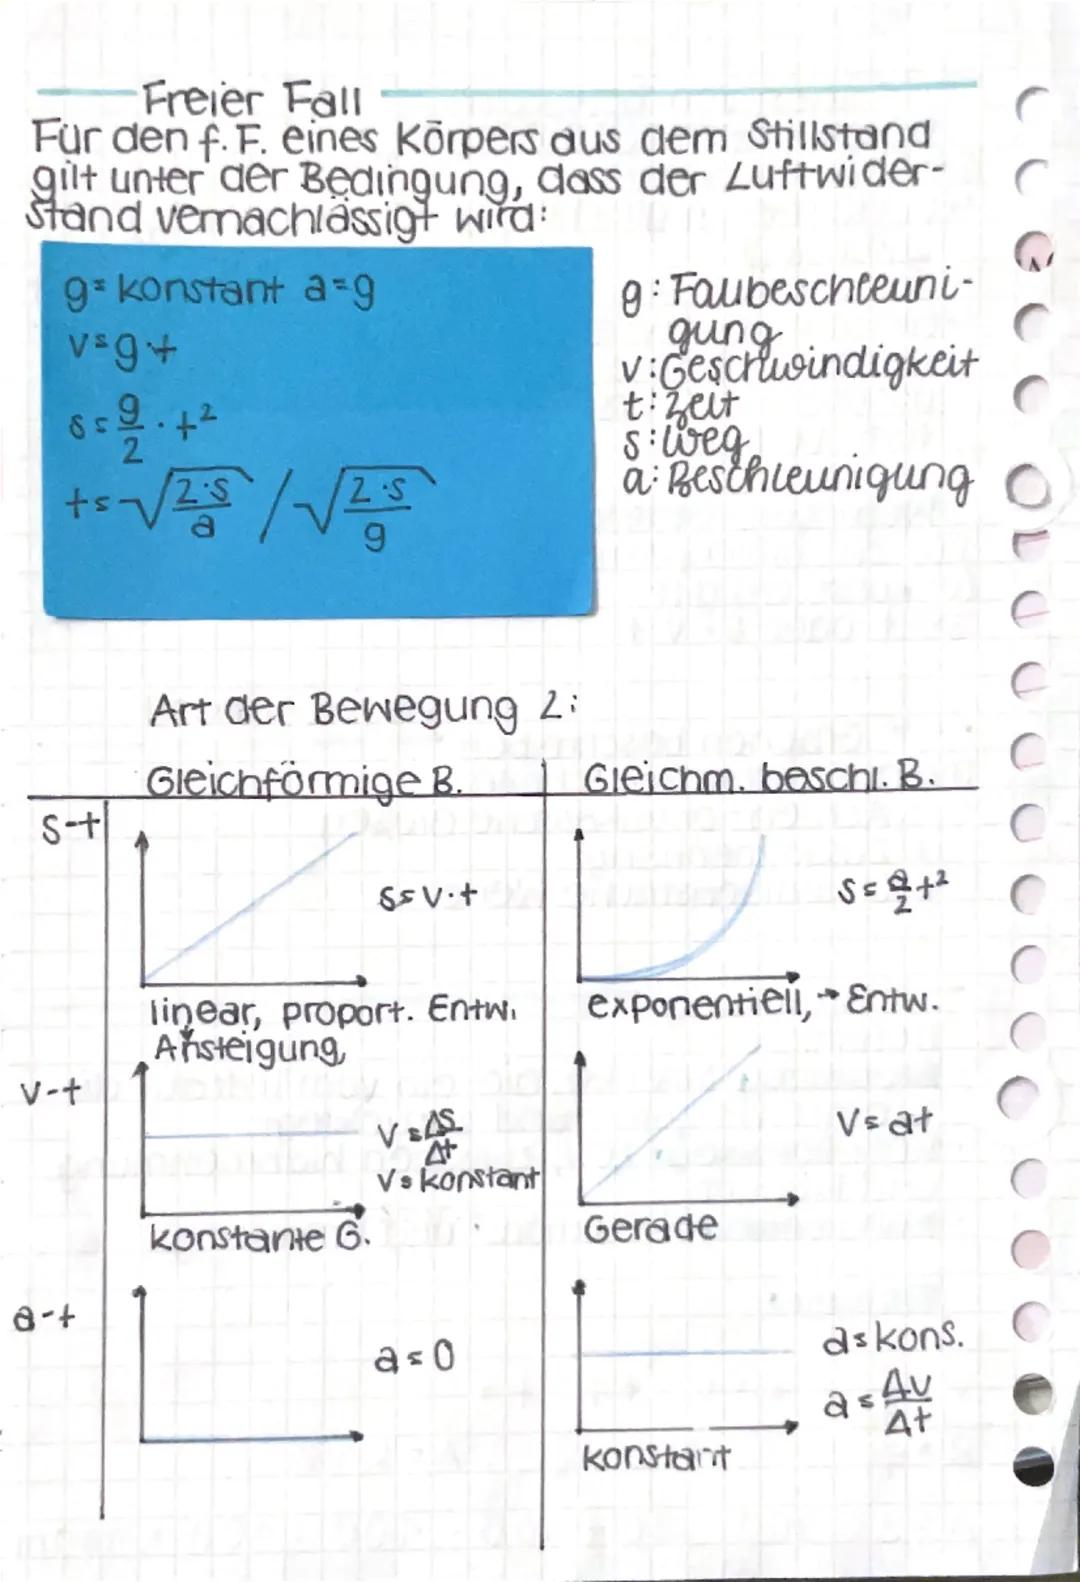 Freier Fall
Für den f. F. eines Körpers aus dem Stillstand
gilt unter der Bedingung, dass der Luftwider-
stand vernachlässigt wird:
g = konstant a = g
v = g · t
s = g/2 · t²
t = √(2·s/a) / √(2·s/g)
g: Fallbeschleuni-
gung
v: Geschwindigkeit
t: Zeit
s: Weg
a: Beschleunigung
Art der Bewegung 2:
Gleichförmige B. Gleichm. beschl. B.
s-t
s = v · t
s = a/2 t²
linear, proport. Entw.
Ansteigung,
exponentiell, → Entw.
v-t
v = Δs/Δt
v = konstant
v = at
konstante G.
Gerade
a-t
a = 0
a = kons.
a = Δv/Δt
konstant